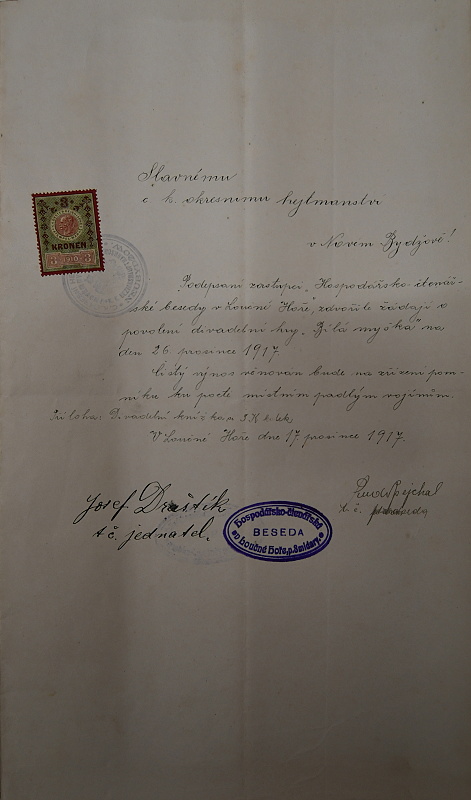 Slavnému
c. k. okresnímu hejtmanství
v Novém Bydžově!
3
KRONEN
3 1910 3
Podepsaní zástupci „Hospodářsko-čtenář-
ské besedy v Loučné Hoře“, zdvořile žádají o
povolení divadelní hry „Bílá myška“ na
den 26. prosince 1917.
Čistý výnos věnován bude na zřízení pom-
níku ku poctě místním padlým vojínům.
Příloha: Divadelní knížka, a K kolek
V Loučné Hoře dne 17. prosince 1917.
Josef Draštík
t. č. jednatel.
Hospodářsko-čtenářská
BESEDA
v Loučné Hoře, p. Smidary.
Rud. Pejchal
t. č.